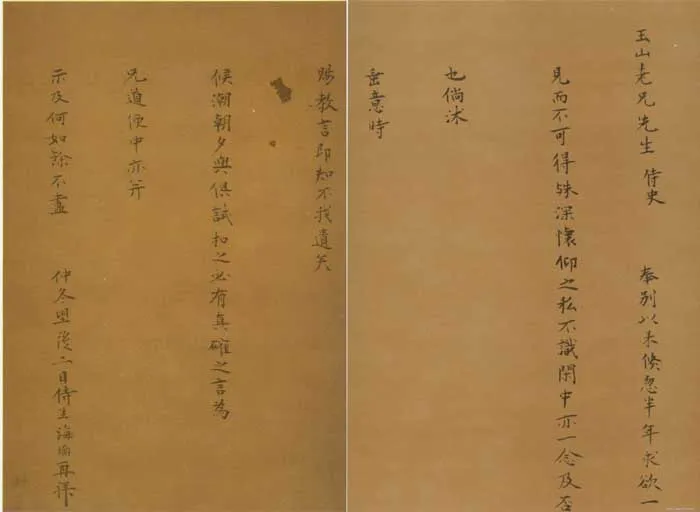 玉山老兄先生 侍史 奉别以来倏忽半年求欲一
見而不可得殊深懷仰之私不識閑中亦一念及否
也倘沐
垂意時
賜教言即知不我遺矣
候潮朝夕與俱試扣之必有真確之言為
兄道便中亦并
示及何如餘不盡 仲冬望後二日侍生海瑞再拜